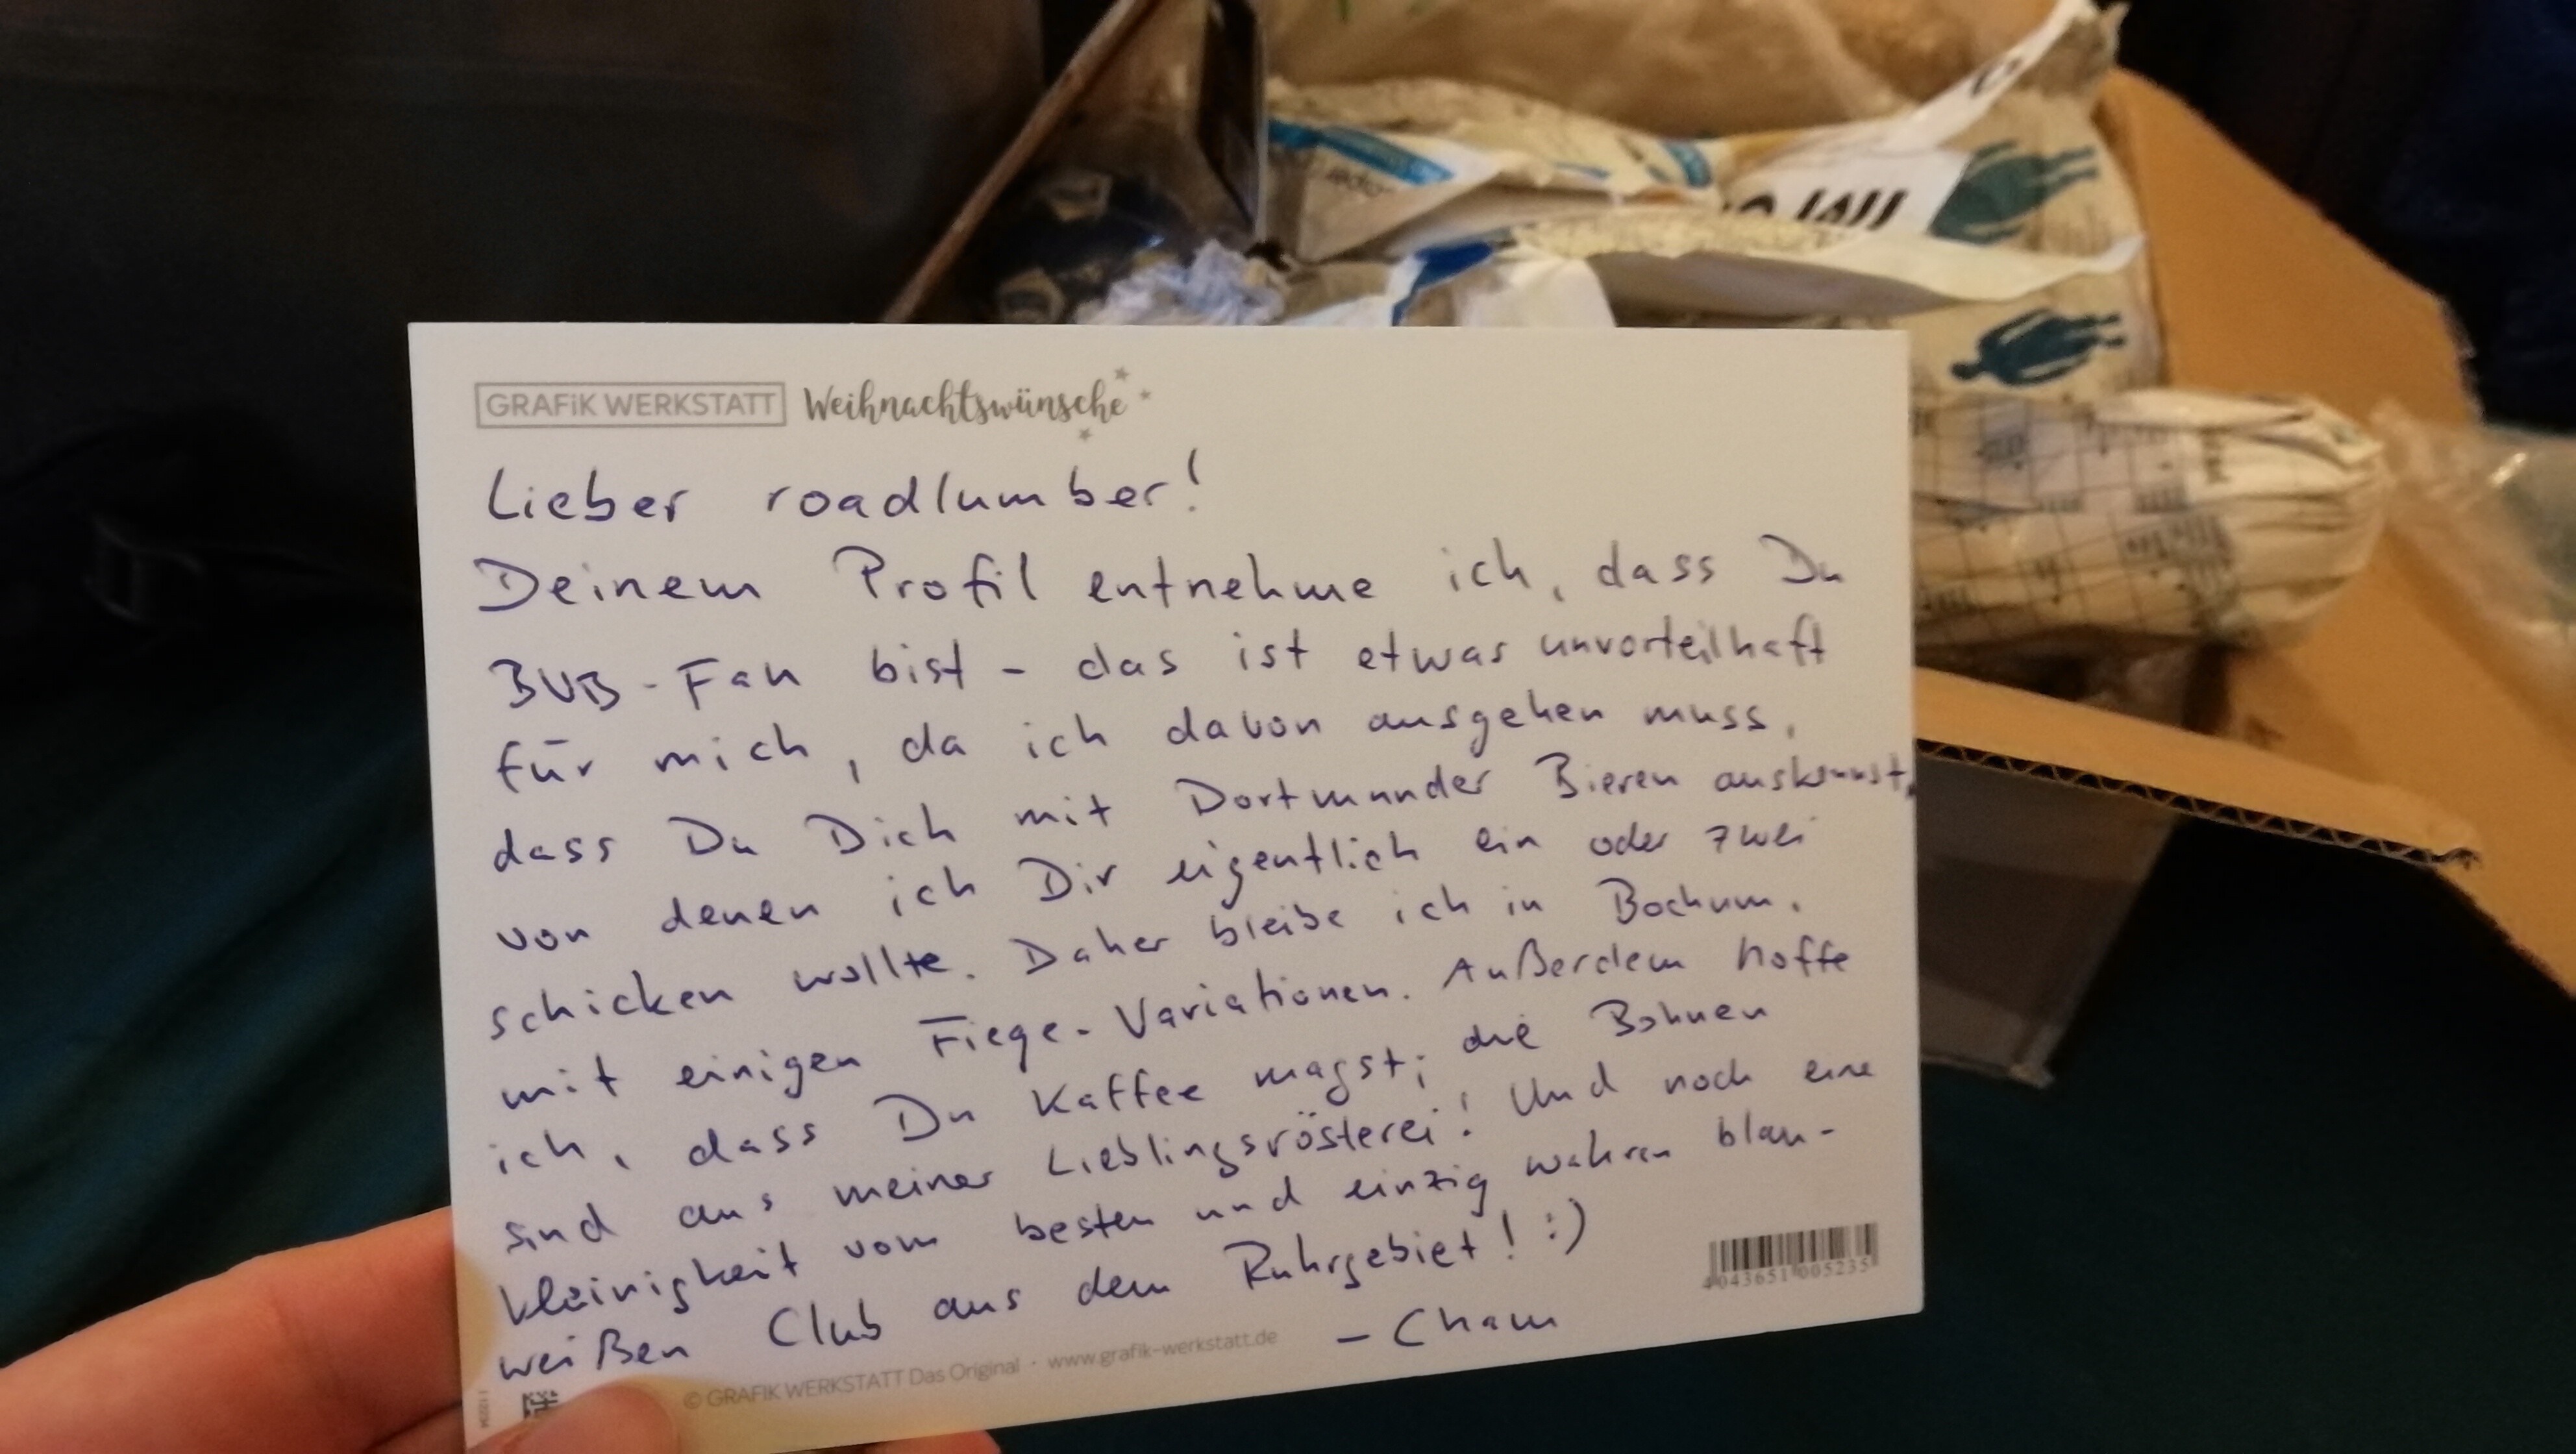 GRAFiK WERKSTATT Weihnachtswünsche
Lieber roadlumber!
Deinem Profil entnehme ich, dass Du
BVB-Fan bist - das ist etwas unvorteilhaft
für mich, da ich davon ausgehen muss,
dass Du Dich mit Dortmunder Bieren auskennst,
von denen ich Dir eigentlich ein oder zwei
schicken wollte. Daher bleibe ich in Bochum,
mit einigen Fiege-Variationen. Außerdem hoffe
ich, dass Du Kaffee magst; die Bohnen
sind aus meiner Lieblingsrösterei! Und noch eine
Kleinigkeit vom besten und einzig wahren blau-
weißen Club aus dem Ruhrgebiet! :)
- Cham
4043651005235
© GRAFIK WERKSTATT Das Original · www.grafik-werkstatt.de